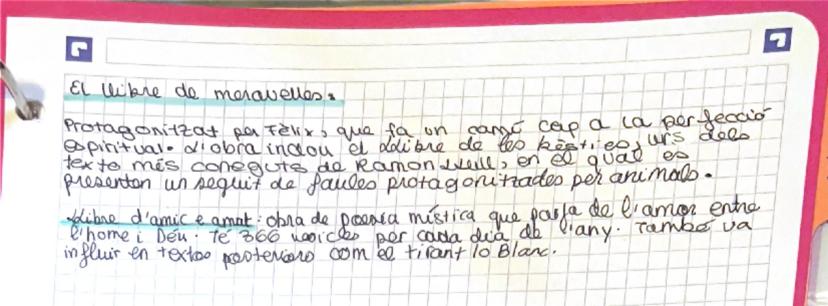 El llibre de meravelles:
Protagonitzat per Fèlix, que fa un camí cap a la perfecció
espiritual. L'obra inclou el Llibre de les bèsties, urs dels
texts més coneguts de Ramon Llull, en el qual es
presenten un seguit de faules protagonitzades per animals.
Llibre d'amic e amat: obra de poesia mística que parla de l'amor entre
l'home i Déu. Té 366 versicles per cada dia de l'any. També va
influir en textos posteriors com el tirant lo Blanc.